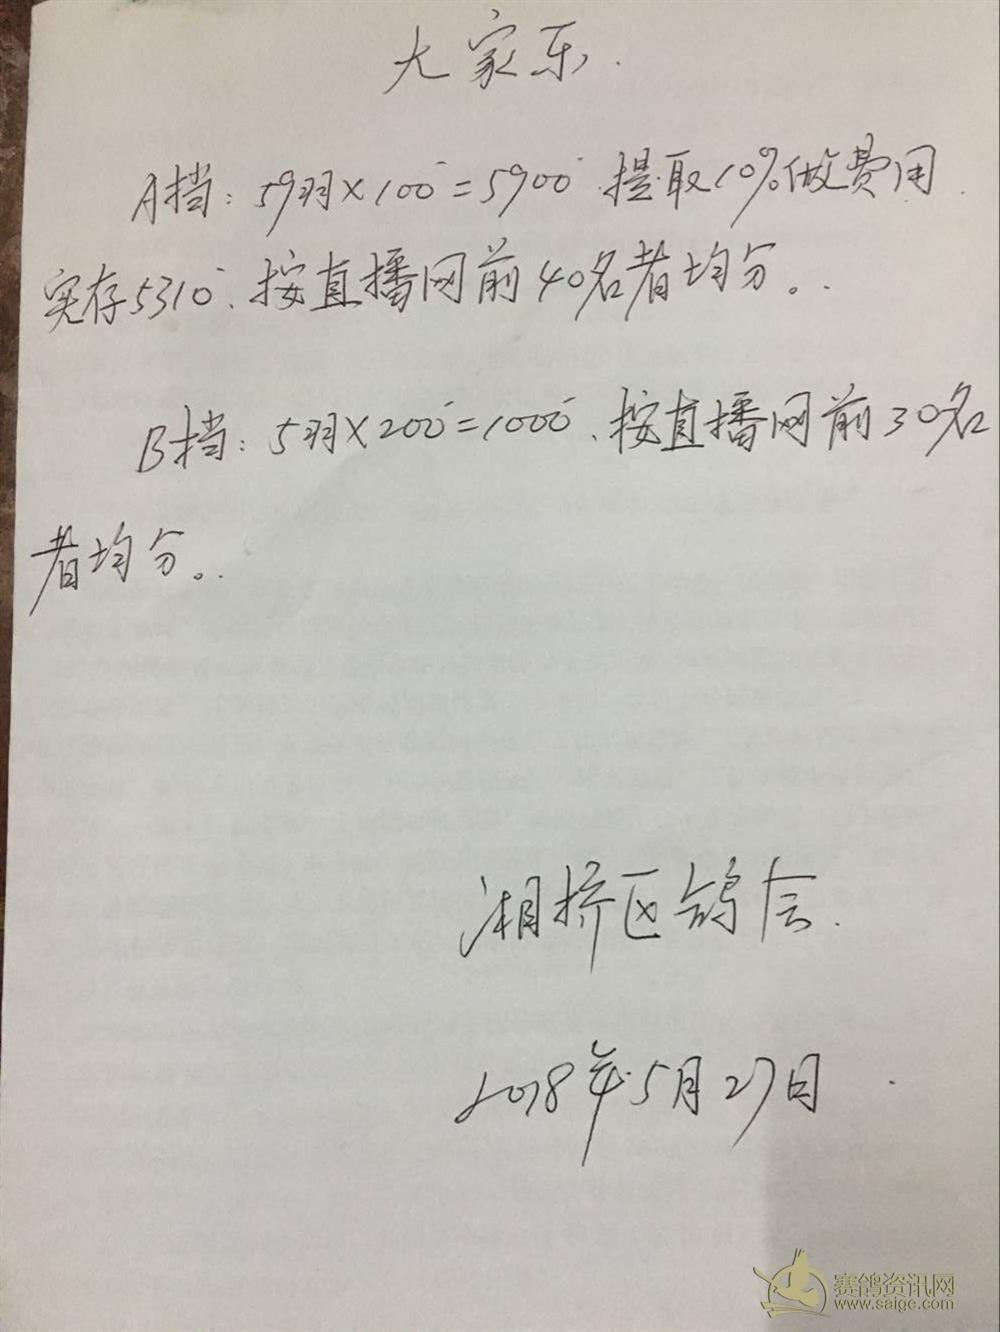 大家乐.
A挡: 59羽×100=5900 提取10%做费用
实存5310. 按直播网前40名者均分。
B挡: 5羽×200=1000. 按直播网前30名
者均分。
湘桥区鸽会.
2018年5月27日
赛鸽资讯网
www.saige.com